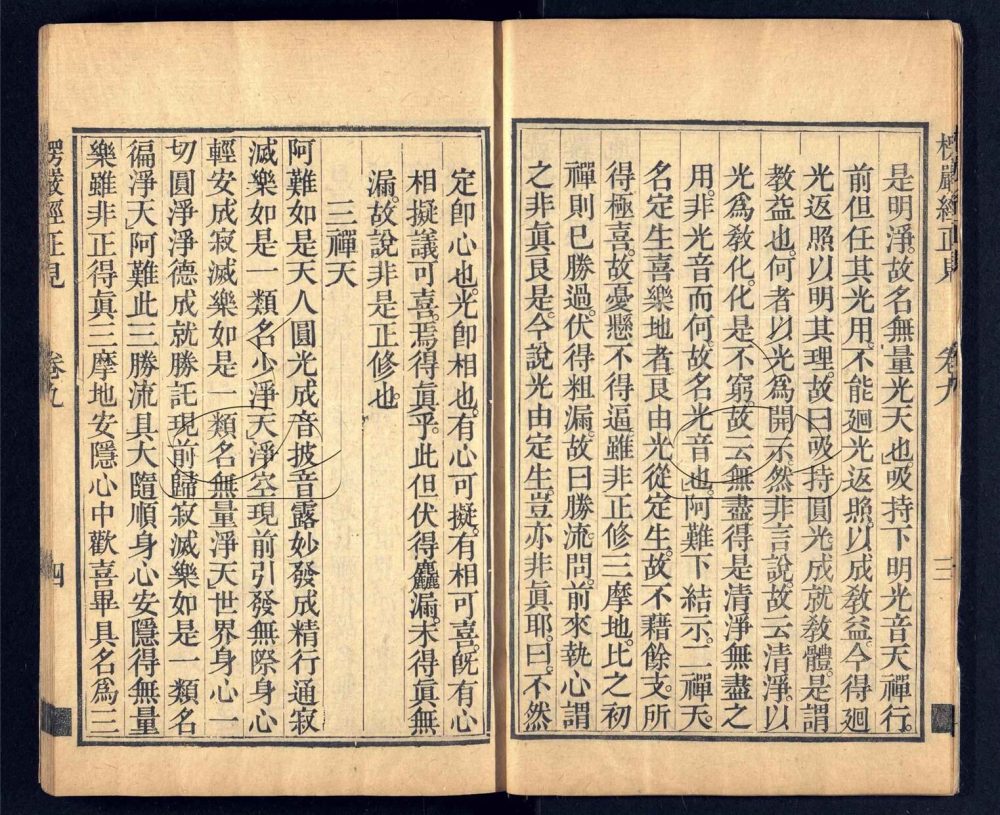 楞嚴經正見 卷九 三
是明淨。故名無量光天也。吸持下明光音天禪行。
前但任其光用。不能廻光返照。以成教益。今得廻
光返照以明其理。故曰吸持圓光成就教體。是謂
教益也。何者以光為開示。然非言說。故云清淨。以
光為教化。化是不窮。故云無盡得是清淨無盡之
用。非光音而何。故名光音也。阿難下結示。二禪天。
名定生喜樂地者。良由光從定生。故不藉餘支。所
得極喜。故憂懸不得逼。雖非正修三摩地。比之初
禪則已勝過。伏得粗漏。故曰勝流。問。前來執心謂
之非眞良是。今說光由定生。豈亦非眞耶。曰。不然
定卽心也。光卽相也。有心可擬。有相可喜。旣有心
相擬議可喜。焉得眞乎。此但伏得麤漏。未得眞無
漏。故說非是正修也。
三禪天
阿難如是天人圓光成音披音露妙發成精行通寂
滅樂如是一類名少淨天」淨空現前引發無際身心
輕安成寂滅樂如是一類名無量淨天」世界身心一
切圓淨淨德成就勝託現前歸寂滅樂如是一類名
徧淨天」阿難此三勝流具大隨順身心安隱得無量
樂雖非正得眞三摩地安隱心中歡喜畢具名爲三
楞嚴經正見 卷九 四